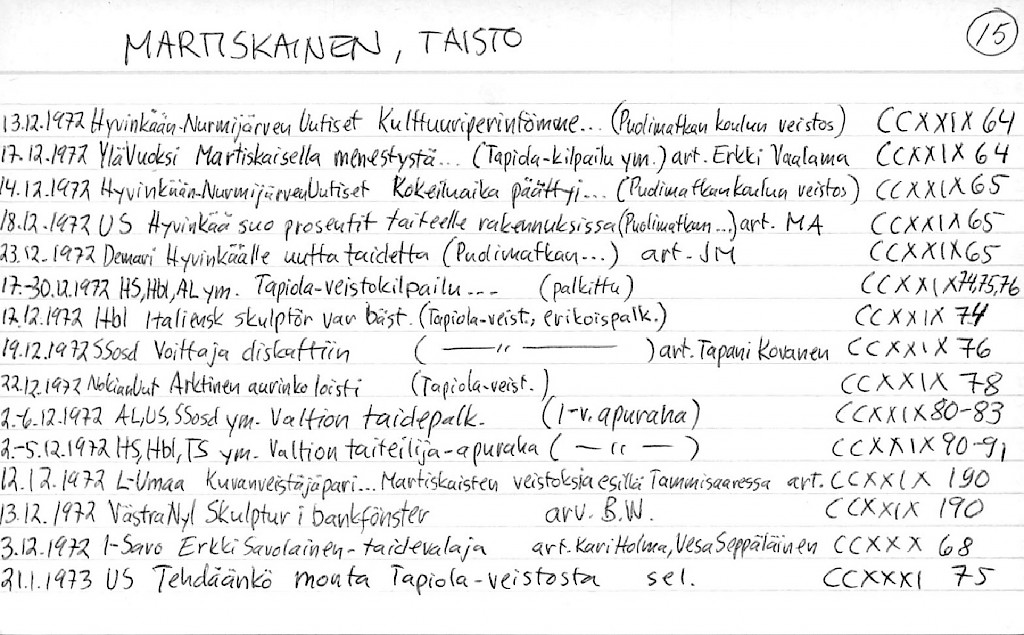 MARTISKAINEN, TAISTO
15
13.12.1972 Hyvinkään-Nurmijärven Uutiset Kulttuuriperintömme... (Puolimatkan koulun veistos) CCXXIX 64
17.12.1972 YläVuoksi Martiskaisella menestystä... (Tapiola-kilpailu ym.) art. Erkki Vaalama CCXXIX 64
14.12.1972 Hyvinkään-Nurmijärven Uutiset Kokeiluaika päättyi... (Puolimatkan koulun veistos) CCXXIX 65
18.12.1972 US Hyvinkää suo prosentit taiteelle rakennuksissa (Puolimatkan...) art. MA CCXXIX 65
23.12.1972 Demari Hyvinkäälle uutta taidetta (Puolimatkan...) art. JM CCXXIX 65
17.-30.12.1972 HS, Hbl, AL ym. Tapiola-veistokilpailu--- (palkittu) CCXXIX 74,75,76
17.12.1972 Hbl Italiensk skulptör var bäst. (Tapiola-veist., erikoispalk.) CCXXIX 74
19.12.1972 SSosd Voittaja diskattiin ( —"— ) art. Tapani Kovanen CCXXIX 76
22.12.1972 NokianUut Arktinen aurinko loisti (Tapiola-veist.) CCXXIX 78
2.-6.12.1972 AL, US, SSosd ym. Valtion taidepalk. (1-v. apuraha) CCXXIX 80-83
2.-5.12.1972 HS, Hbl, TS ym. Valtion taiteilija-apuraha ( —"— ) CCXXIX 90-91
12.12.1972 L-Umaa Kuvanveistäjäpari... Martiskaisten veistoksia esillä Tammisaaressa art. CCXXIX 190
13.12.1972 VästraNyl Skulptur i bankfönster arv. B.W. CCXXIX 190
3.12.1972 I-Savo Erkki Savolainen - taidevalaja art. Kari Holma, Vesa Seppäläinen CCXXX 68
21.1.1973 US Tehdäänkö monta Tapiola-veistosta sel. CCXXXI 75